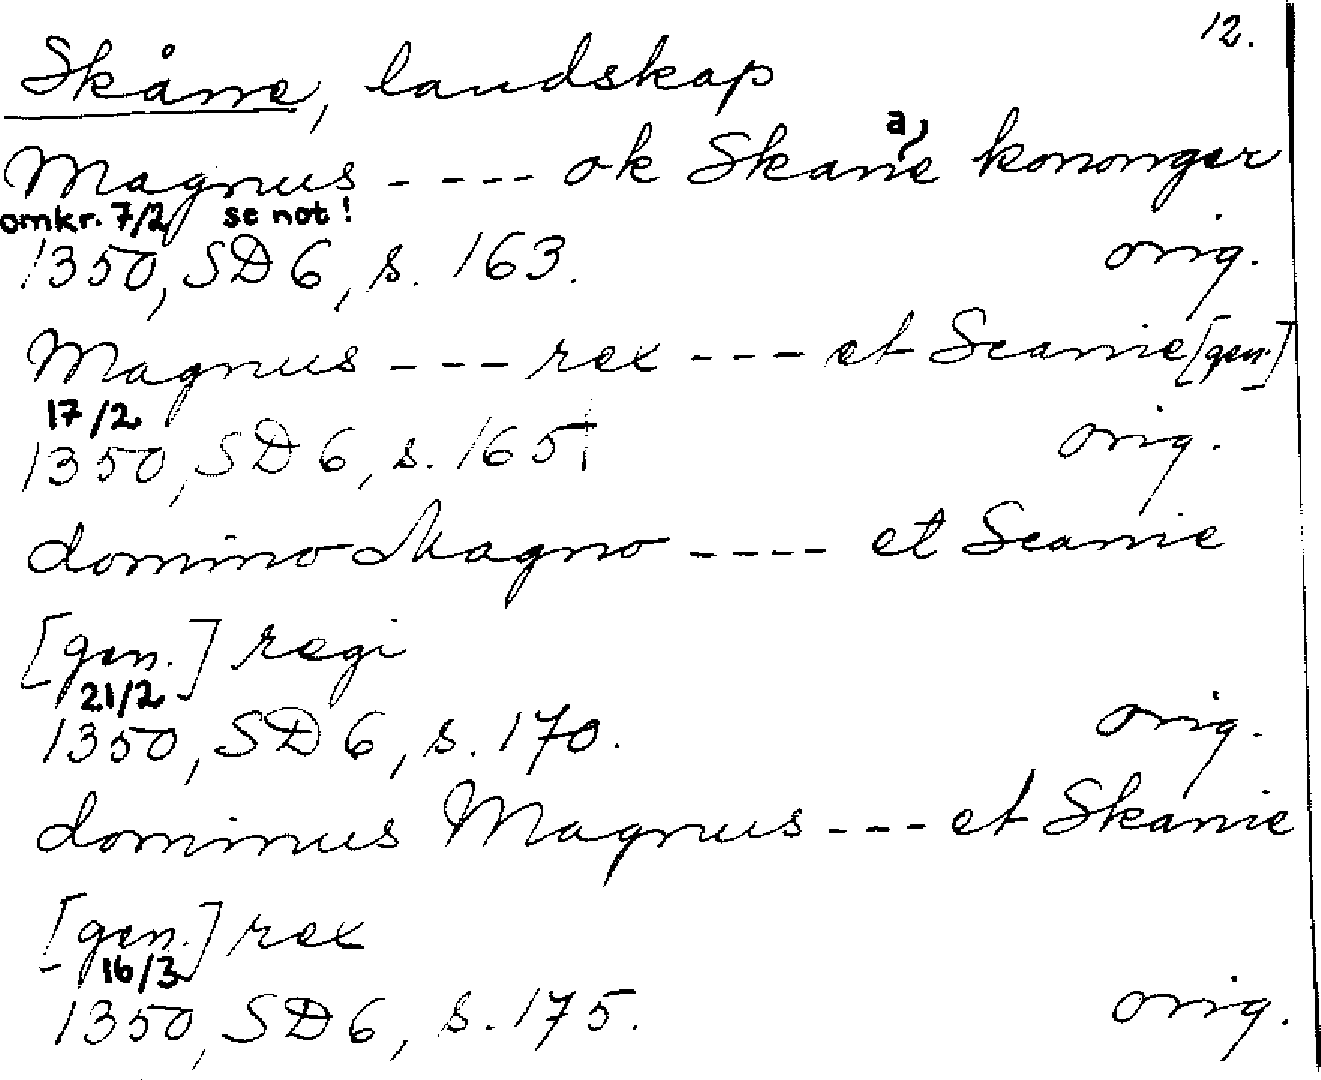 12.
Skåne, landskap
a,
Magnus ---- ok Skane kononger
omkr. 7/2 se not!
1350, SD 6, s. 163. orig.
Magnus --- rex --- et Scanie [gen.]
17/2
1350, SD 6, s. 165 orig.
domino Magno ---- et Scanie
[gen.] regi
21/2
1350, SD 6, s. 170. orig.
dominus Magnus --- et Skanie
[gen.] rex
16/3
1350, SD 6, s. 175. orig.